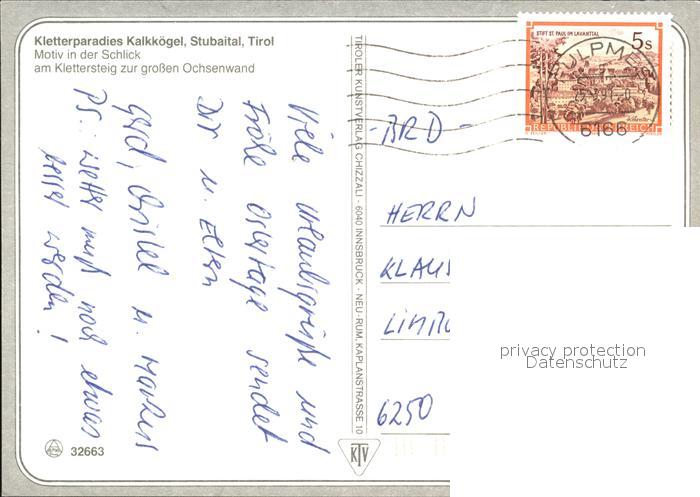 Kletterparadies Kalkkögel, Stubaital, Tirol
Motiv in der Schlick
am Klettersteig zur großen Ochsenwand
Viele Urlaubsgrüße und
frohe Ostertage sendet
Dir u. Eltern
Gerd, Christel u. Markus
PS.: Wetter muß noch etwas
besser werden!
32663
TIROLER KUNSTVERLAG CHIZZALI - 6040 INNSBRUCK - NEU-RUM, KAPLANSTRASSE 10
KTV
STIFT ST. PAUL IM LAVANTTAL
5s
REPUBLIK ÖSTERREICH
6166
- BRD -
HERRN
KLAUS
6250
privacy protection
Datenschutz